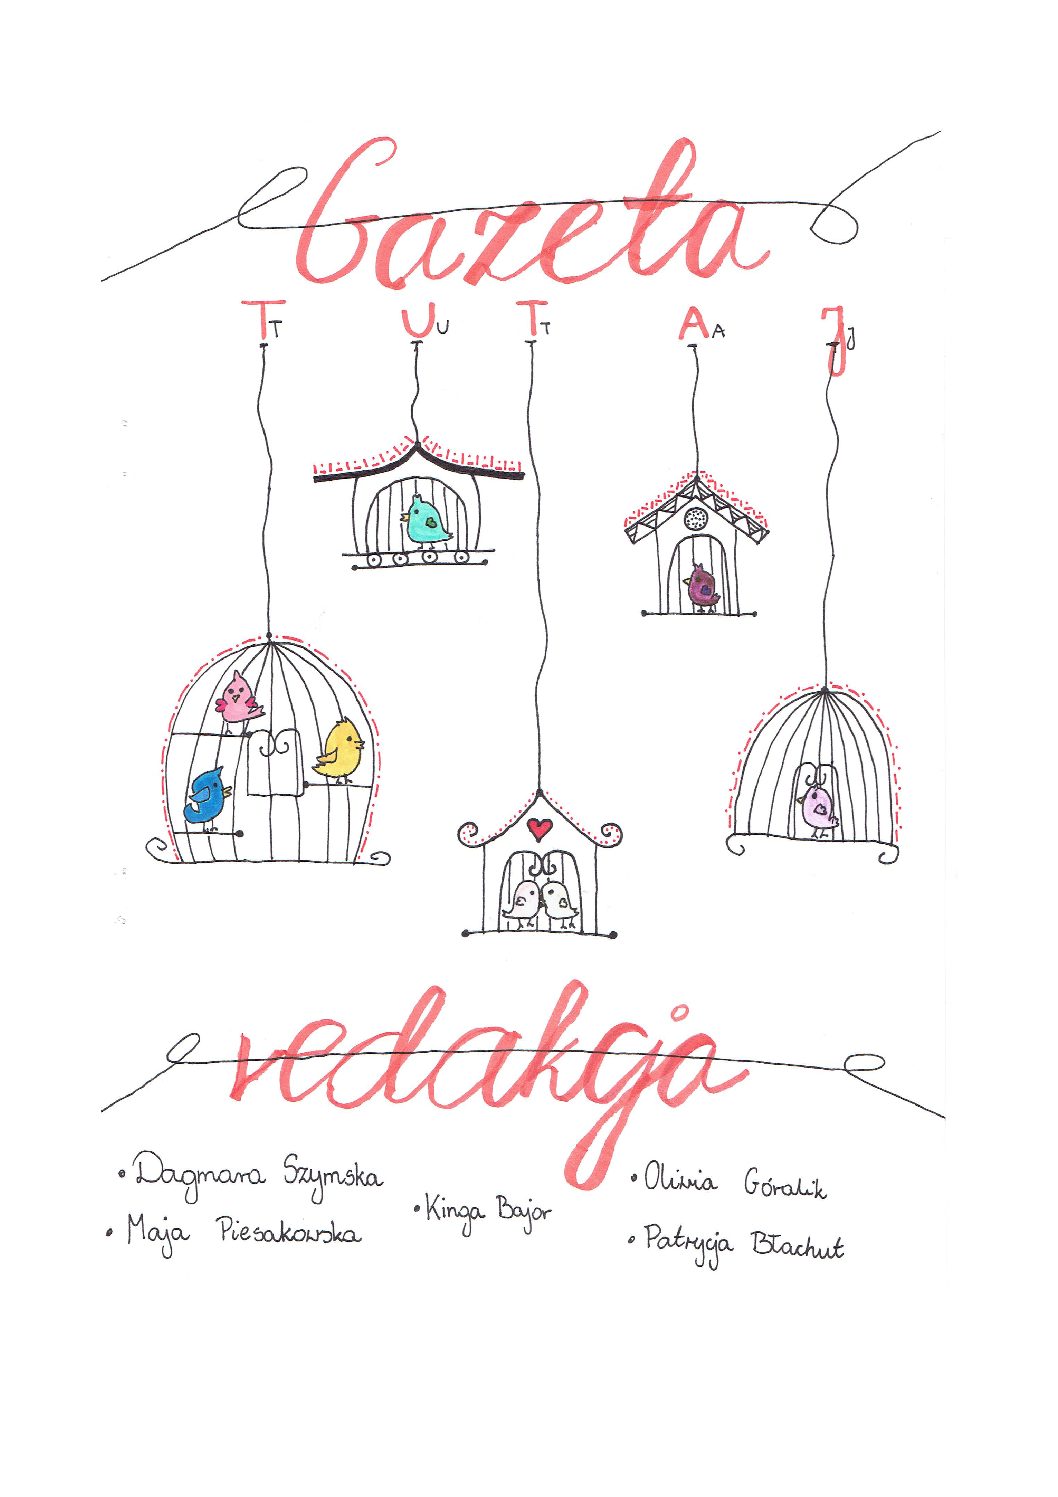 Gazeta
TT UU TT AA JJ
redakcja
• Dagmara Szymska
• Maja Piesakowska
• Kinga Bajor
• Oliwia Góralik
• Patrycja Błachut